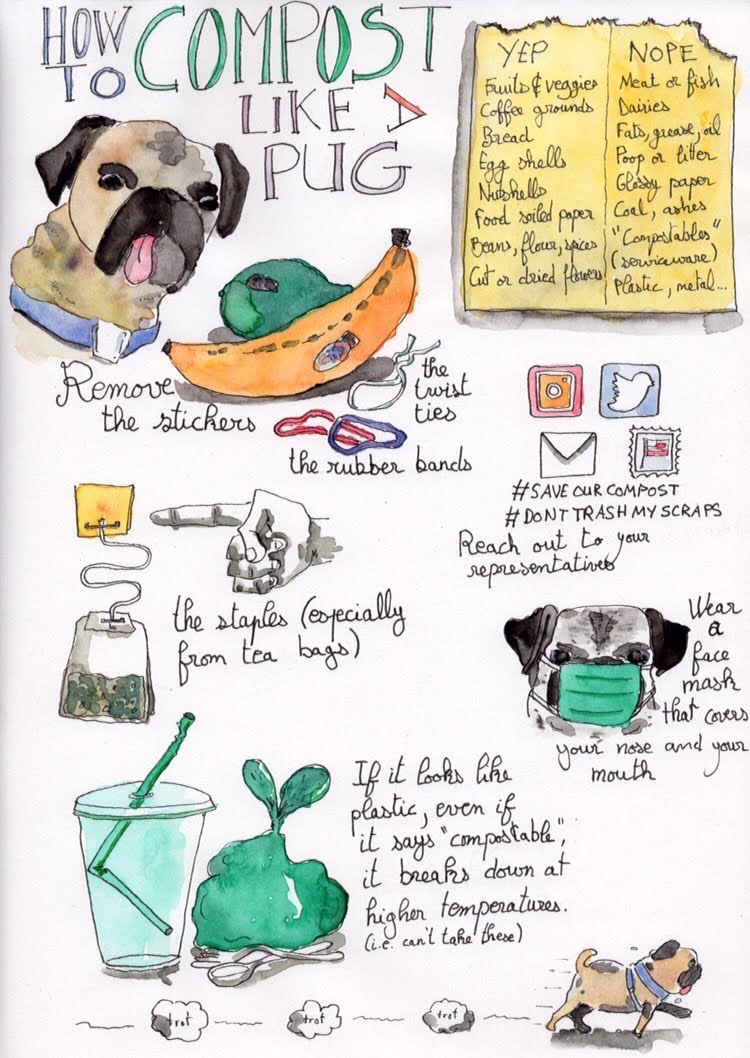 HOW
TO
COMPOST
LIKE A
PUG
YEP
Fruits & veggies
Coffee grounds
Bread
Egg shells
Nutshells
Food soiled paper
Beans, flour, spices
Cut or dried flowers
NOPE
Meat or fish
Dairies
Fats, grease, oil
Poop or litter
Glossy paper
Coal, ashes
"Compostables"
(serviceware)
Plastic, metal...
Remove
the stickers
the
twist
ties
the rubber bands
#SAVE OUR COMPOST
#DONT TRASH MY SCRAPS
Reach out to your
representatives
the staples (especially
from tea bags)
Wear
a
face
mask
that covers
your nose and your
mouth
If it looks like
plastic, even if
it says "compostable",
it breaks down at
higher temperatures.
(i.e. can't take these)
trot
trot
trot